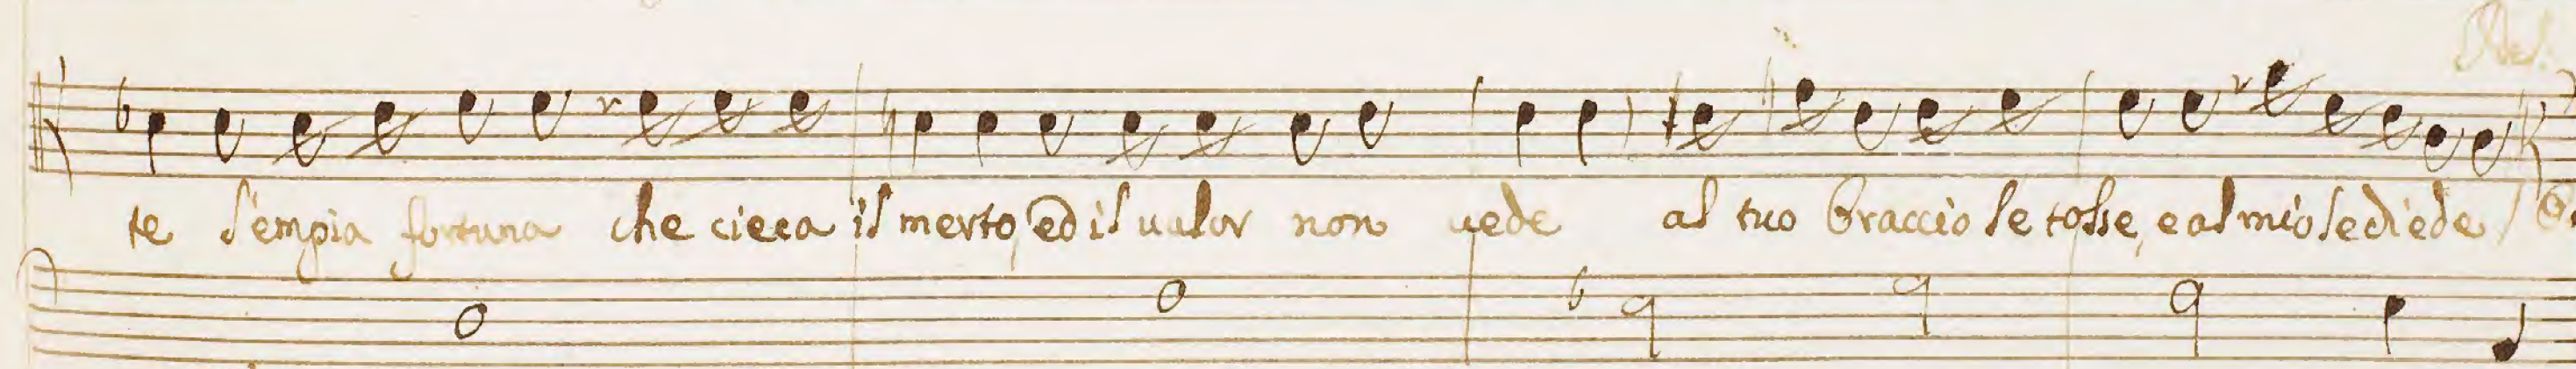 Del:
te l'empia fortuna che cieca il merto, ed il ualor non uede al tuo braccio le tolse, e al mio le diede